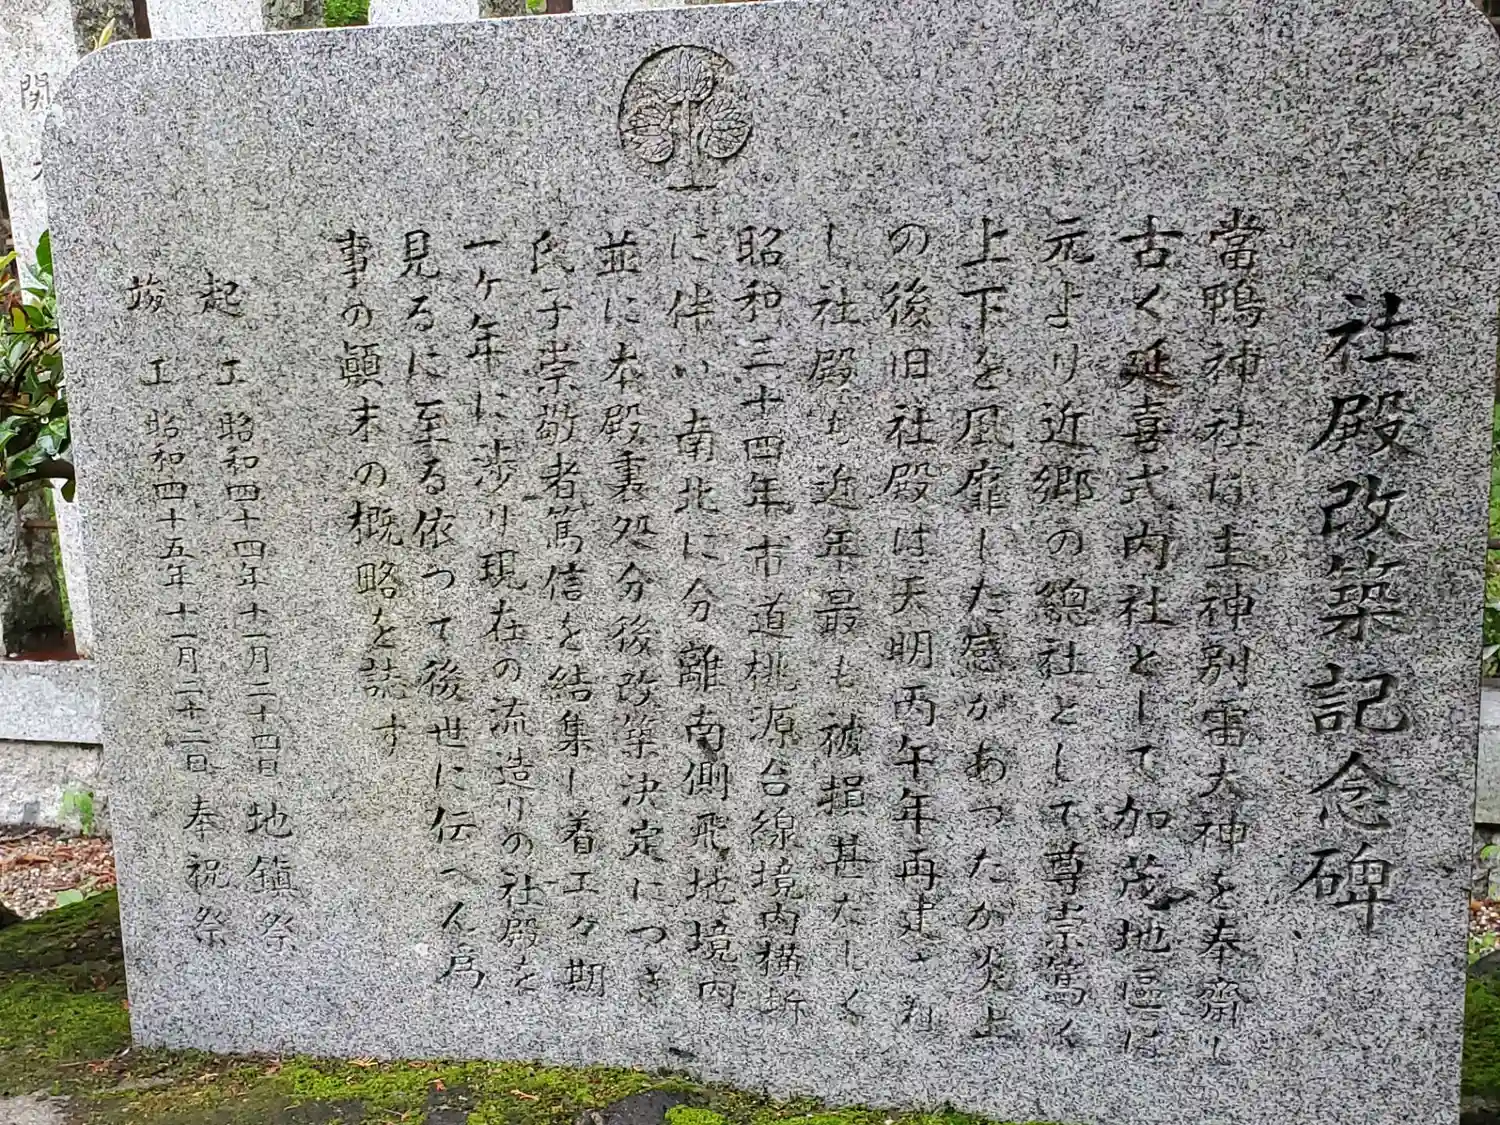 社殿改築記念碑
當鴨神社は主神別雷大神を奉齋し
古く延喜式内社として加茂地區は
元より近郷の總社として尊崇篤く
上下を風靡した感があったが炎上
の後旧社殿は天明丙午年再建され
し社殿も近年最も破損甚だしく
昭和三十四年市道桃源台線境内横断
に伴い南北に分離南側飛地境内
並に本殿裏処分後改築決定につき
氏子崇敬者篤信を結集し着工々期
一ヶ年に渉り現在の流造りの社殿を
見るに至る依って後世に伝へん為
事の顛末の概略を誌す
起工 昭和四十四年十一月二十四日 地鎮祭
竣工 昭和四十五年十一月二十二日 奉祝祭
関